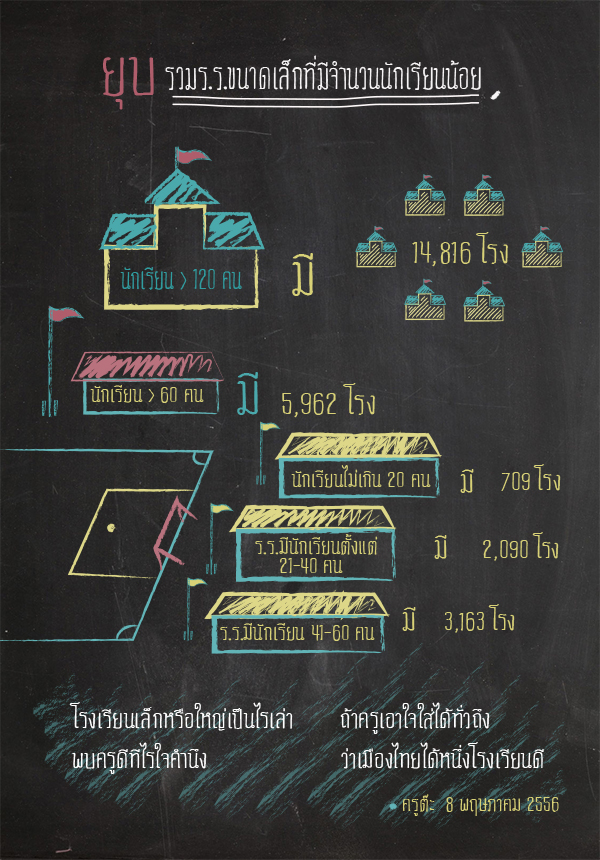 ยุบ รวมร.ร.ขนาดเล็กที่มีจำนวนนักเรียนน้อย
นักเรียน > 120 คน
มี
14,816 โรง
นักเรียน > 60 คน
มี
5,962 โรง
นักเรียนไม่เกิน 20 คน
มี
709 โรง
ร.ร.มีนักเรียนตั้งแต่
21-40 คน
มี
2,090 โรง
ร.ร.มีนักเรียน 41-60 คน
มี
3,163 โรง
โรงเรียนเล็กหรือใหญ่เป็นไรเล่า
ถ้าครูเอาใจใส่ได้ทั่วถึง
พบครูดีที่ไรใจคำนึง
ว่าเมืองไทยได้หนึ่งโรงเรียนดี
ครูต๊ะ 8 พฤษภาคม 2556